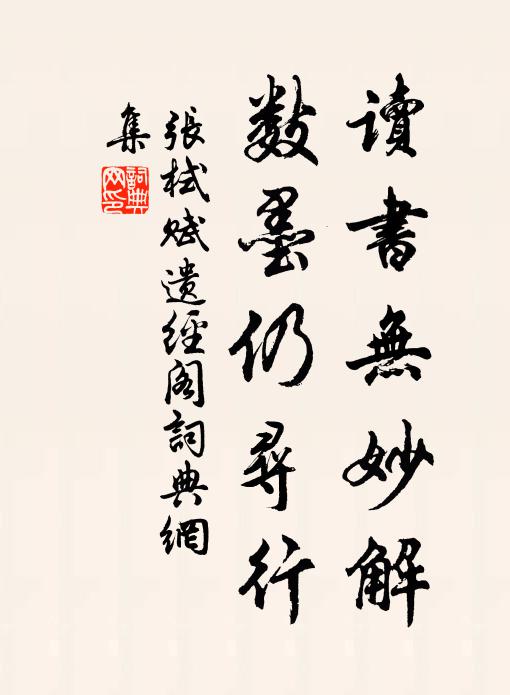 讀書無妙解
數墨仍尋行
張栻賦遺經閣詞典網
集
詞典網印